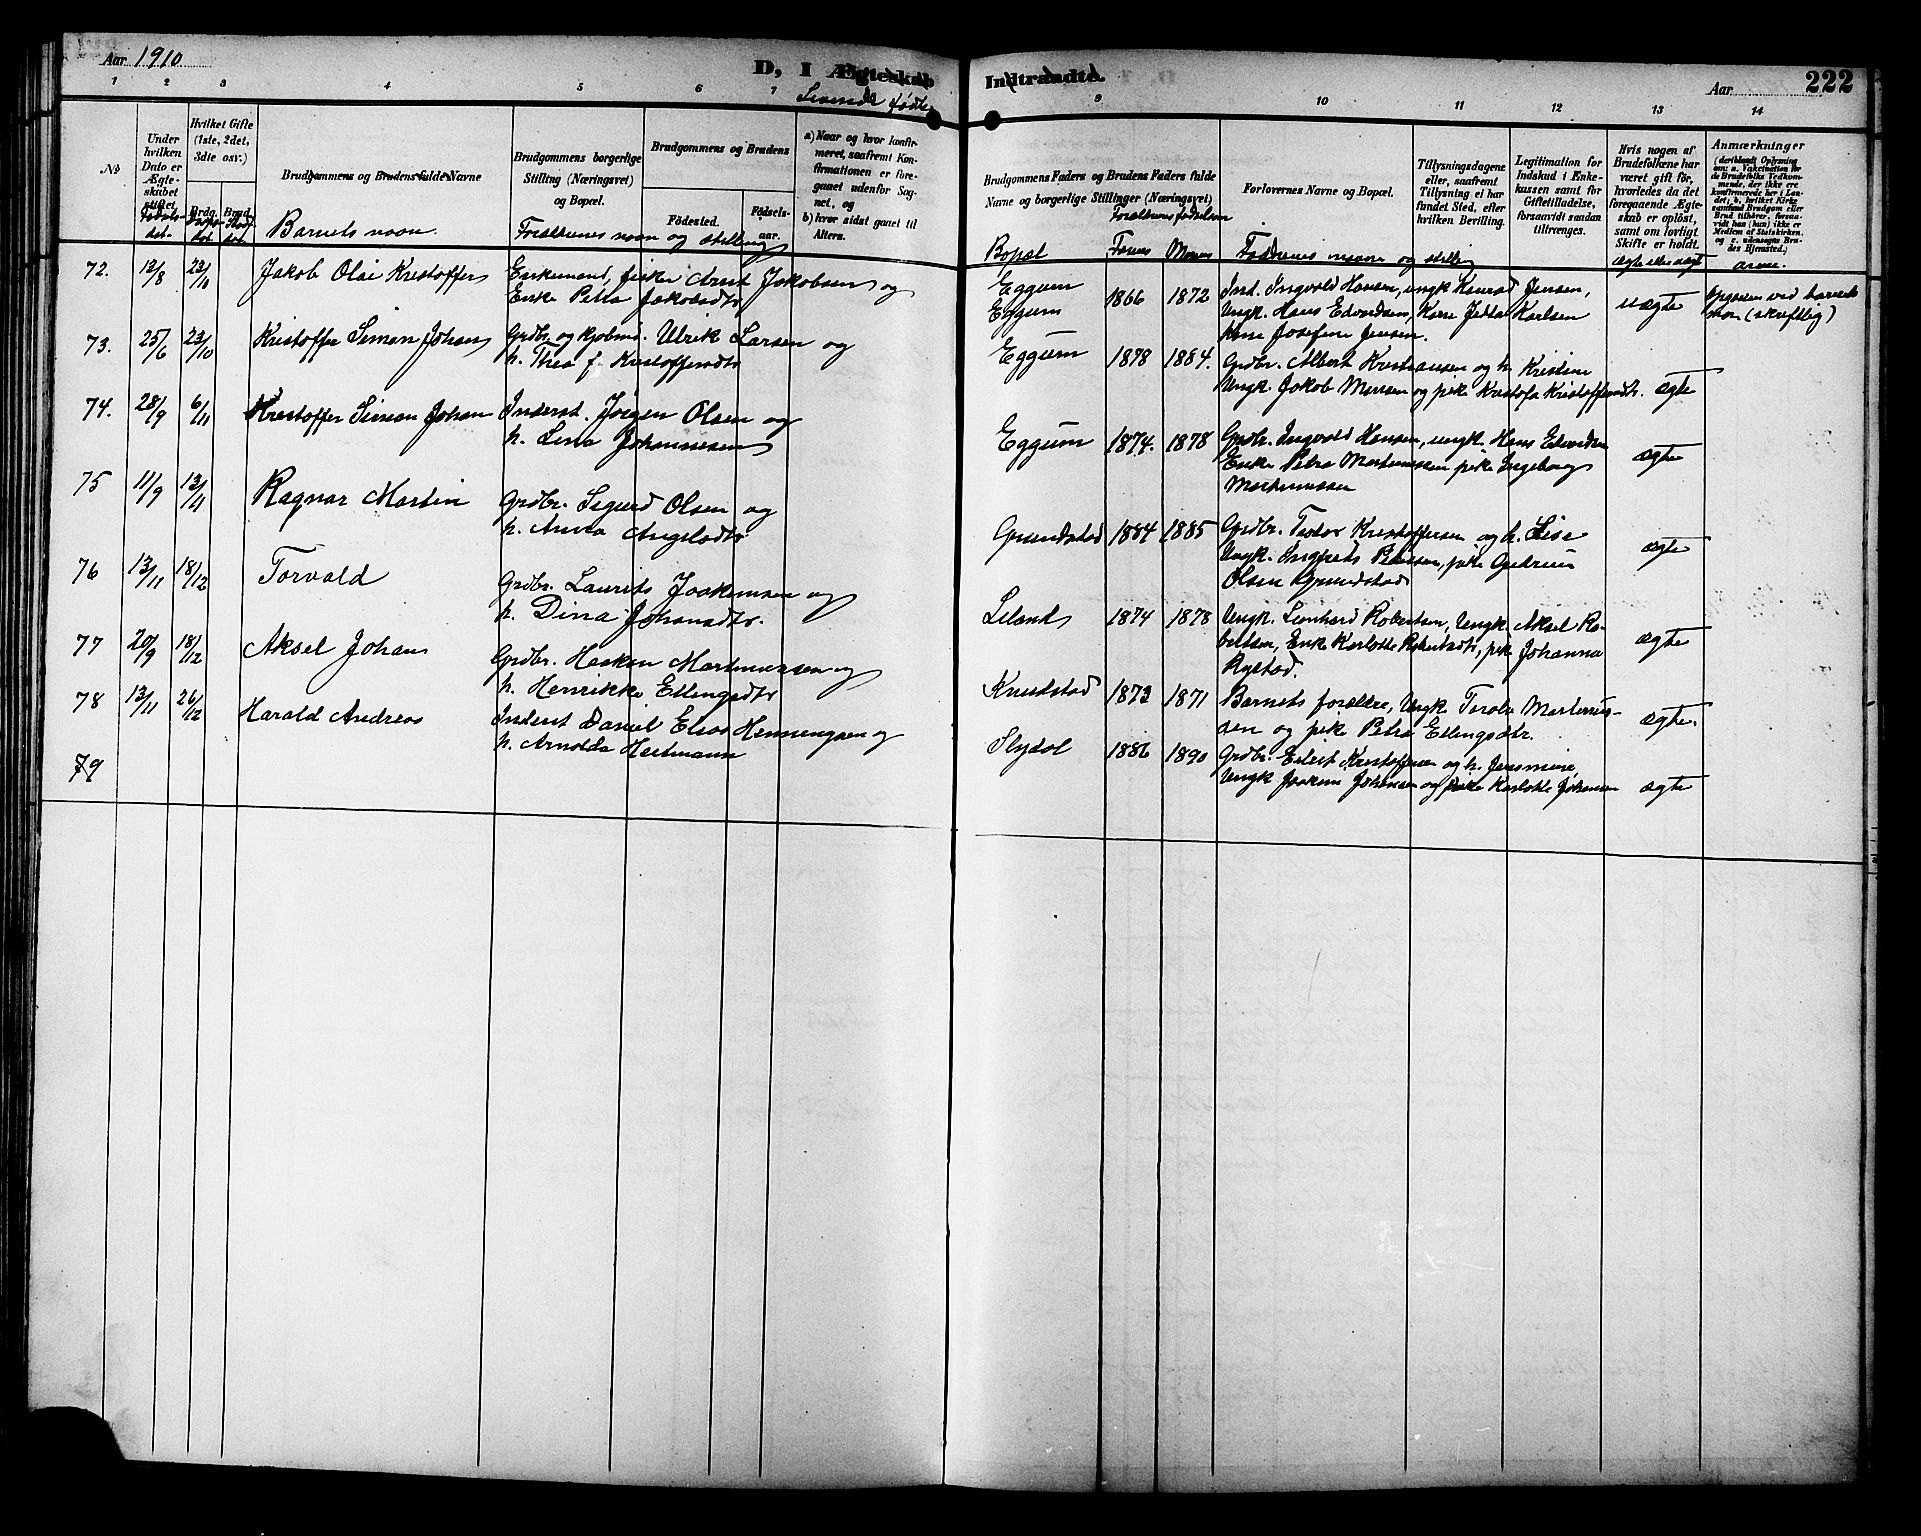 Aar 1910
D, I Ægteskab Indtraadte.
Aar 222
Levende fødte
1 2 3 4 5 6 7 9 10 11 12 13 14
№
Under hvilken Dato er Ægteskabet stiftet.
Hvilket Gifte (1ste, 2det, 3die osv.)
Brdg. Brud.
Brudgommens og Brudens fulde Navne
Brudgommens borgerlige Stilling (Næringsvei) og Bopæl.
Brudgommens og Brudens
Fødested.
Fødselsaar.
a) Naar og hvor konfirmeret, saafremt Konfirmationen er foregaaet udenfor Sognet, og
b) hvor sidst gaaet til Alters.
Brudgommens Faders og Brudens Faders fulde Navne og borgerlige Stillinger (Næringsvei)
Forlovernes Navne og Bopæl.
Tillysningsdagene eller, saafremt Tillysning ei har fundet Sted, efter hvilken Bevilling.
Legitimation for Indskud i Enkekassen samt for Giftetilladelse, forsaavidt saadan tiltrænges.
Hvis nogen af Brudefolkene har været gift før, hvorledes da det foregaaende Ægteskab er opløst, samt om lovligt Skifte er holdt.
Anmærkninger
Barnets navn.
Forældrenes navn og stilling
Forældrenes fødselsaar
Bopæl Farens Morens
Faddernes navne og stilling
ægte eller uægte
anm.
72. 12/8 23/10 Jakob Olai Kristoffer
Enkemand, fisker Arnt Jakobsen og
Enke Petra Jakobsdtr
Eggum
Eggum 1866 1872
Ind. Ingvald Hansen, ungk Konrad Jensen,
Ungk. Hans Edvardsen, Kone Jetta Karlsen
kone Josefine Jensen.
uægte
Opgaven ved barnets
mor (skriftlig)
73. 25/6 23/10 Kristoffer Simon Johan
Grdbr. og kjøbmd. Ulrik Larsen og
h. Thea f. Kristoffersdtr
Eggum 1878 1884.
Grdbr. Albert Kristiansen og h. Kristine
Ungk. Jakob Monsen og pike Kristofa Kristoffersdtr.
ægte
74. 28/9 6/11 Kristoffer Simon Johan
Inderst. Jørgen Olsen og
h. Lina Johannesen
Eggum 1874. 1878
Grdbr. Ingvald Hansen, ungk. Hans Edvardsen
Enke Petra Martinussen pike Ingeborg
Martinussen
ægte
75 11/9 13/11 Ragnar Martin
Grdbr. Sigurd Olsen og
h. Anna Angelsdtr
Grundstad 1884 1885
Grdbr. Teodor Kristoffersen og h. Lise
Ungk. Ingfrets Pedersen, pike Gudrun
Olsen Grundstad
ægte
76 13/11 18/12 Torvald
Grdbr. Laurits Joakimsen og
h. Dina Johansdtr.
Leland 1874 1878
Ungk. Leonhard Robertsen, Ungk. Aksel Robertsen, Enke Karlotte Robertsdtr, pike Johanna
Rystad.
ægte
77 20/9 18/12 Aksel Johan
Grdbr. Haakon Martinussen og
h. Henrikke Ellingsdtr
Knudstad 1873 1871
Barnets forældre, Ungk Torolv Martinussen og pike Petra Ellingsdtr.
ægte.
78 13/11 26/12 Harald Andreas
Inderst Daniel Elias Henningsen og
h. Arnolda Hertmann
Slydal 1886 1890
Grdbr. Edvit Kristoffersen og h. Jensmine,
Ungk Joakim Johansen og pike Karlotte Johansen
ægte
79